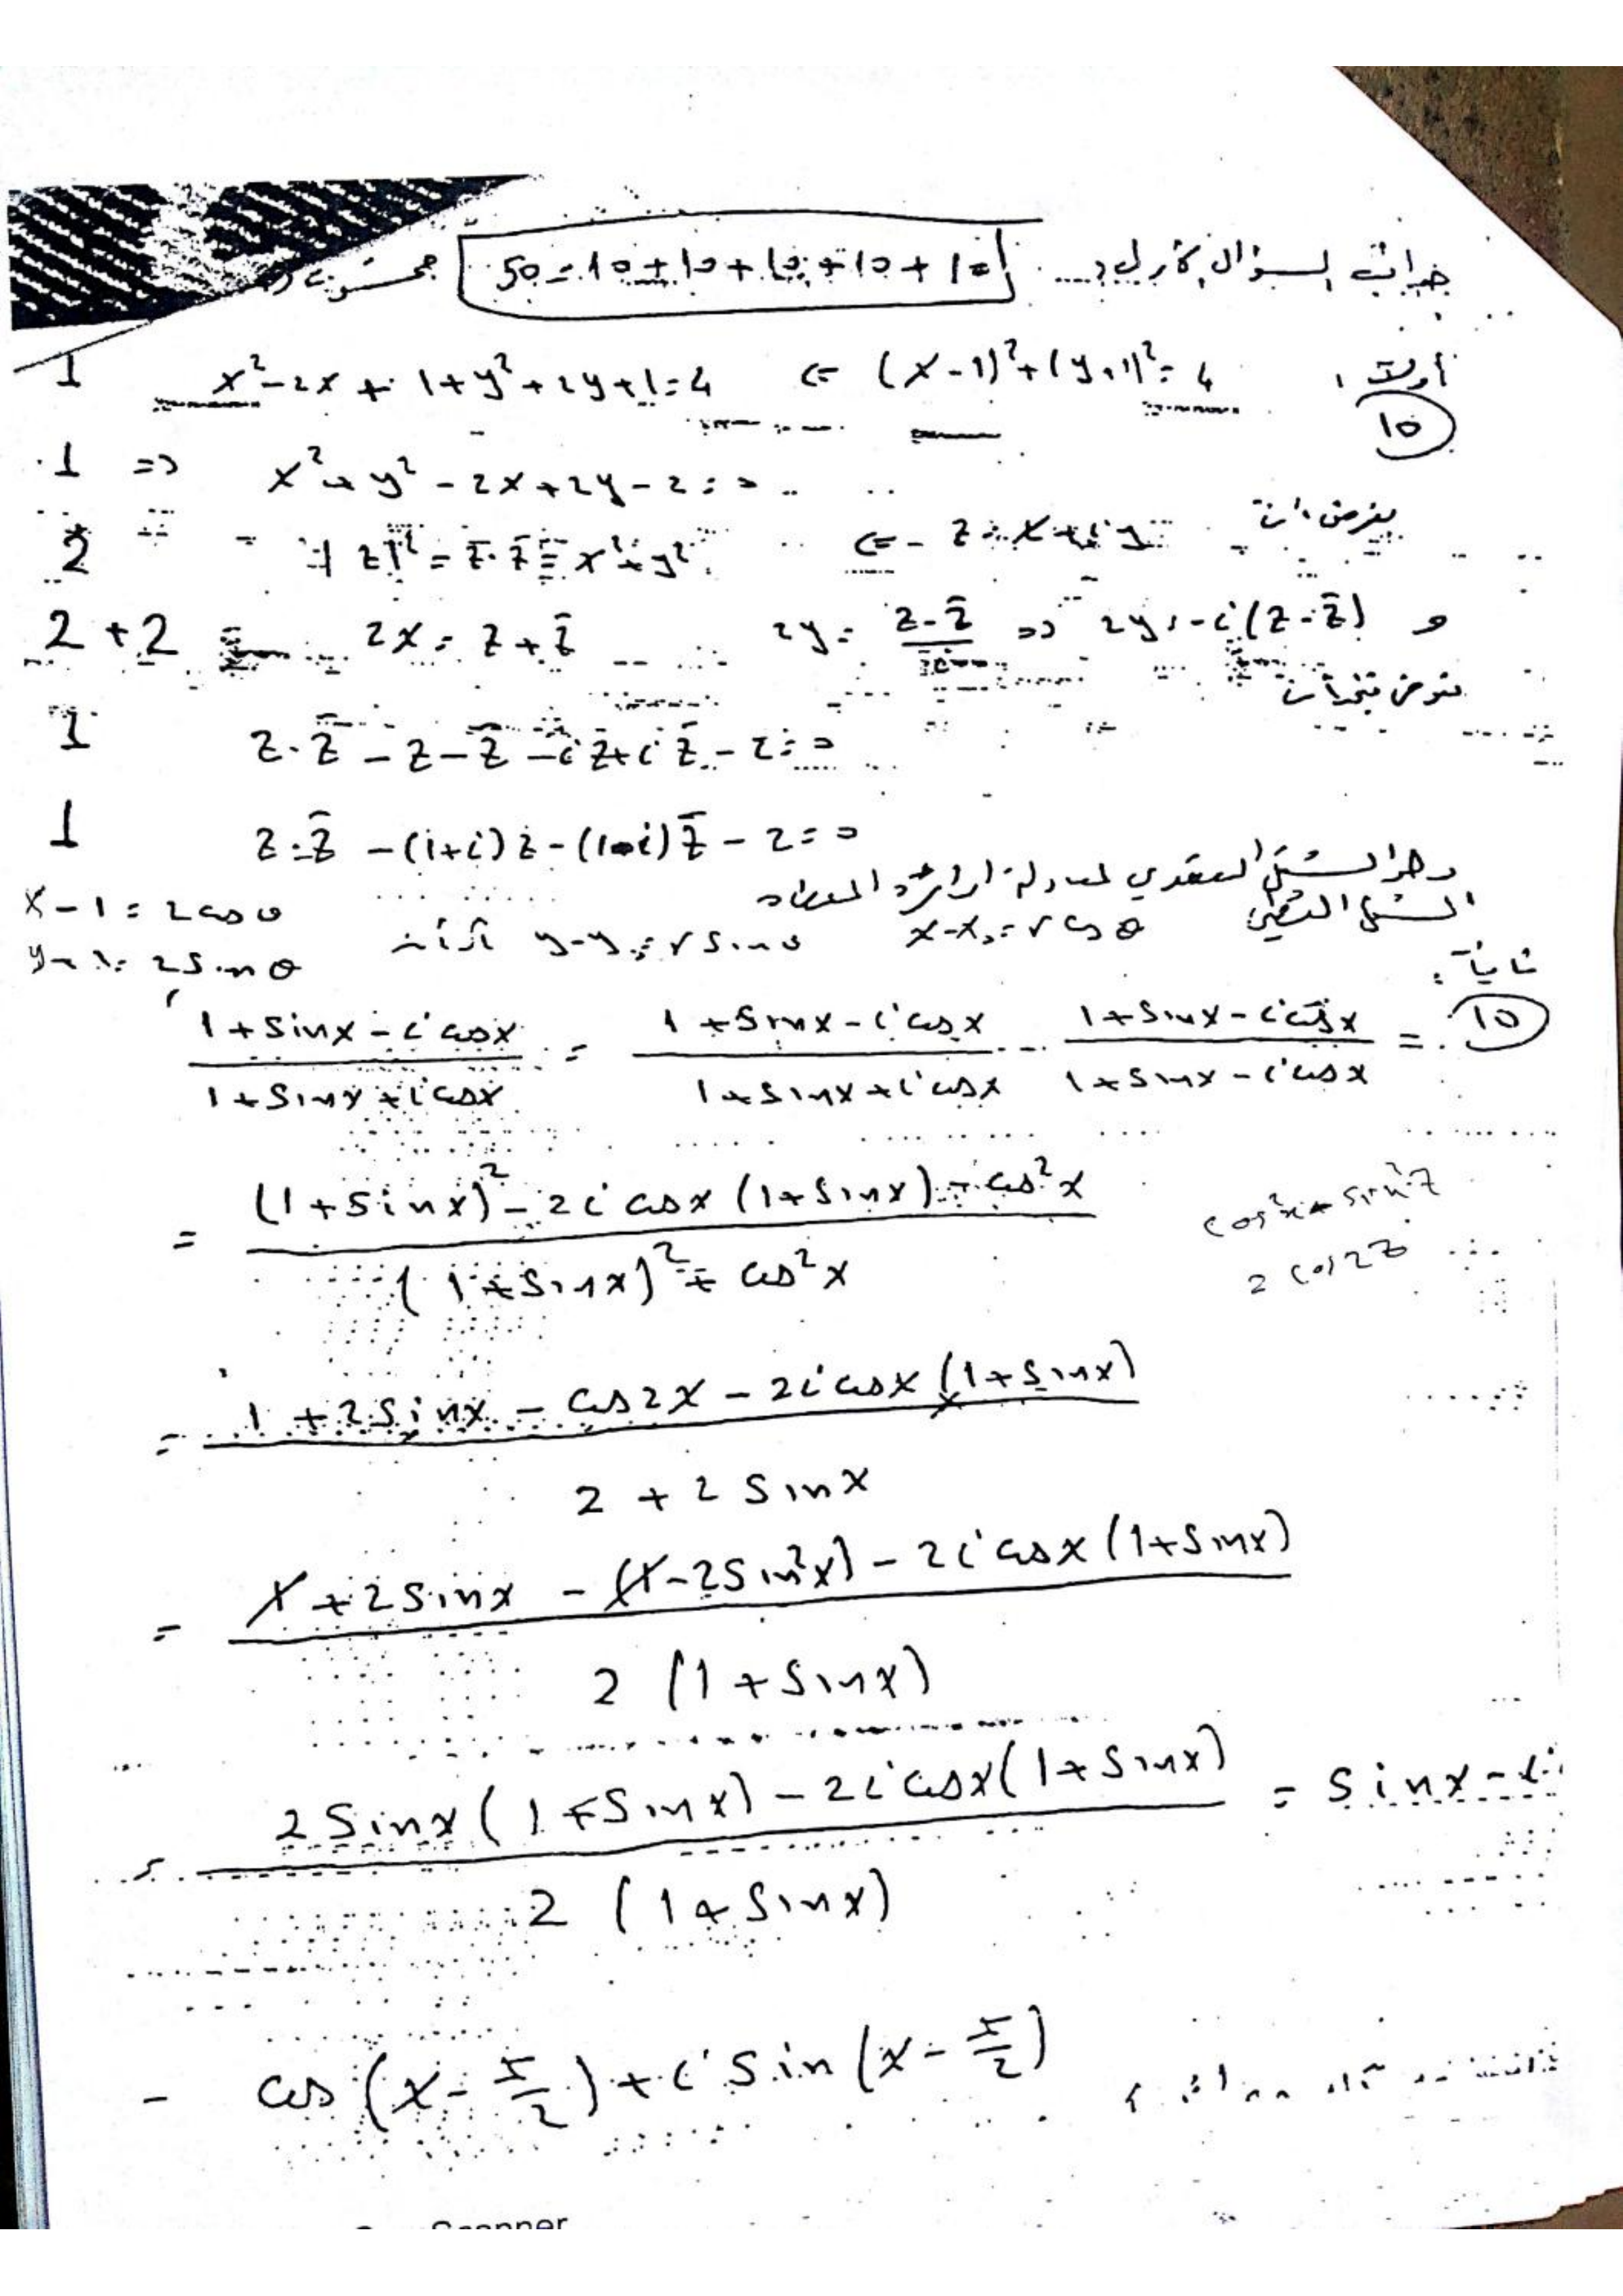 جواب السؤال الأول: 50=10+10+10+10+10
أولاً: (x-1)²+(y+1)²=4 ⇐ x²-2x+1+y²+2y+1=4 1
10
1 ⇒ x²+y²-2x+2y-2=0
بفرض أن z=x+iy ⇐ |z|²=z·z̄=x²+y² 2
و 2y=-i(z-z̄) ⇐ 2y=(z-z̄)/i 2x=z+z̄ 2+2
نعوض فنجد أن
1 z·z̄-z-z̄-iz+iz̄-2=0
1 z·z̄-(1+i)z-(1-i)z̄-2=0
وهو الشكل العقدي لمعادلة الدائرة المعطاة
x-1=2cosθ
الشكل القطبي x-x₀=rcosθ y-y₀=rsinθ
y+1=2sinθ
ثانياً:
10 = (1+sinx-icosx)/(1+sinx+icosx) = (1+sinx-icosx)/(1+sinx+icosx) · (1+sinx-icosx)/(1+sinx-icosx)
= ((1+sinx)²-2icosx(1+sinx)-cos²x)/((1+sinx)²+cos²x)
cos²x+sin²z
2cos2z
= (1+2sinx-cos2x-2icosx(1+sinx))/(2+2sinx)
= (1+2sinx-(1-2sin²x)-2icosx(1+sinx))/(2(1+sinx))
= (2sinx(1+sinx)-2icosx(1+sinx))/(2(1+sinx)) = sinx-i
= cos(x-π/2)+isin(x-π/2)